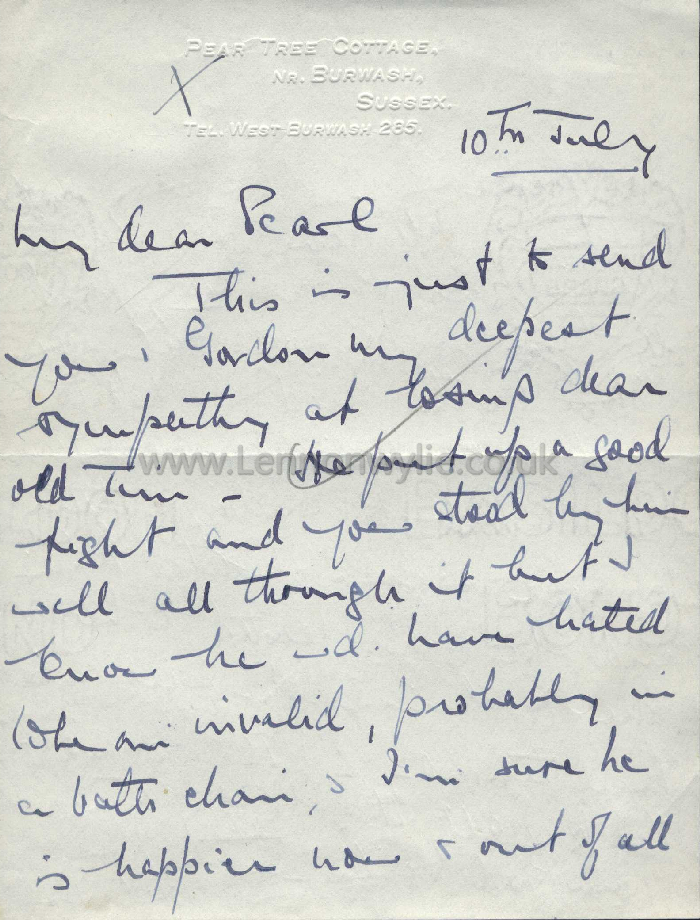 PEAR TREE COTTAGE,
NR. BURWASH,
SUSSEX.
TEL. WEST BURWASH 285.
X
10th July
My dear Pearl
This is just to send
you & Gordon my deepest
sympathy at losing dear
old Tim - He put up a good
fight and you stood by him
well all through it but I
know he wd. have hated
to be an invalid, probably in
a bath chair, & I'm sure he
is happier now & out of all
www.Lennonwylie.co.uk